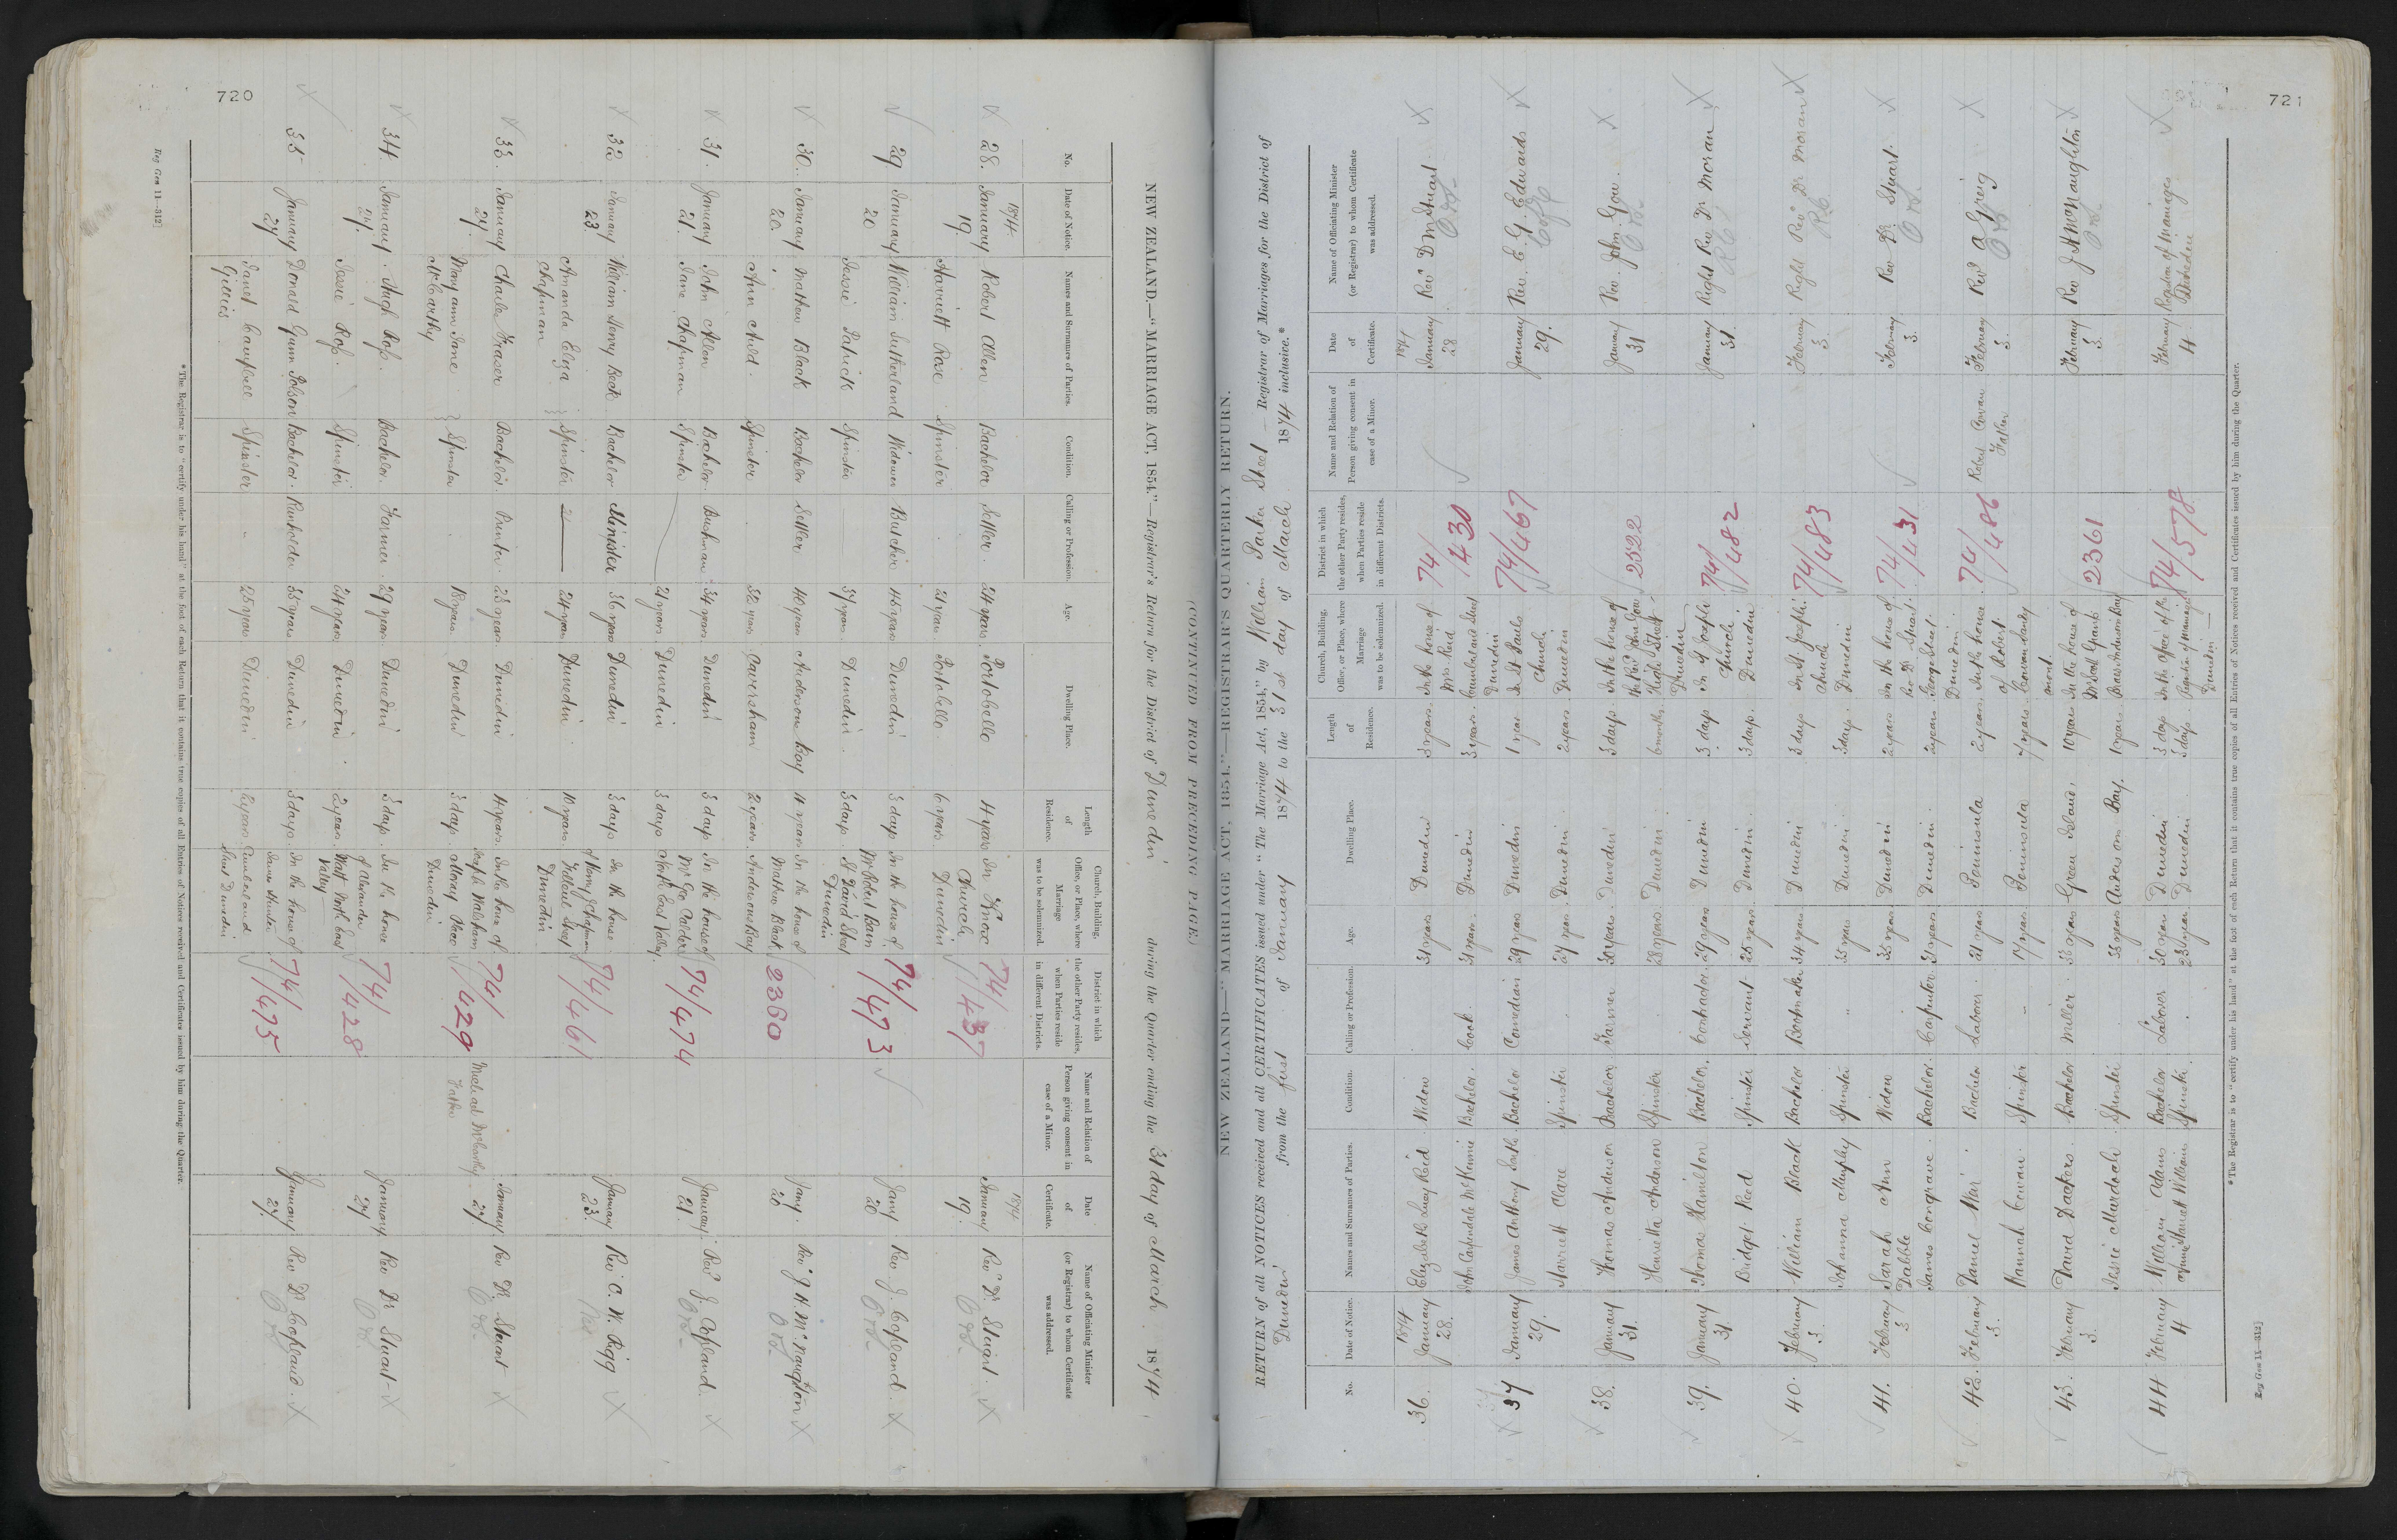 720
NEW ZEALAND.—"MARRIAGE ACT, 1854."—Registrar's Return for the District of Dunedin during the Quarter ending the 31 day of March 1874
(CONTINUED FROM PRECEDING PAGE.)
No. Date of Notice. Names and Surnames of Parties. Condition. Calling or Profession. Age. Dwelling Place. Length of Residence. Church, Building, Office, or Place, where Marriage was to be solemnized. District in which the other Party resides, when Parties reside in different Districts. Name and Relation of Person giving consent in case of a Minor. Date of Certificate. Name of Officiating Minister (or Registrar) to whom Certificate was addressed.
28. 1874 January 19. Robert Allen Bachelor Settler 24 years Portobello 4 years In Knox Church Dunedin 74/437 1874 January 19. Rev Dr Stuart.
Harriett Rose Spinster 21 years Portobello 6 years
29 January 20 William Sutherland Widower Butcher 45 years Dunedin 3 days In the house of Mr Robert Bain St David Street Dunedin 74/473 Jany 20 Rev J. Copland.
Jessie Patrick Spinster 37 years Dunedin 3 days
30. January 20. Mathew Black Bachelor Settler 40 years Andersons Bay 11 years In the house of Mathew Black Andersons Bay 2360 Jany. 20 Rev J. H. McNaughton
Ann Auld. Spinster 32 years Caversham 2 years
31. January 21. John Allen Bachelor Bushman 34 years Dunedin 3 days In the house of Mr Geo Calder North East Valley 74/474 January 21. Rev J. Copland.
Jane Chapman Spinster 21 years Dunedin 3 days
32 January 23 William Henry Beck Bachelor Minister 36 years Dunedin 3 days In the house of Henry Chapman Street Dunedin 74/461 January 23. Rev C. W. Rigg
Amanda Eliza Chapman Spinster 24 years Dunedin 10 years
33. January 24. Charles Fraser Bachelor Printer. 23 years Dunedin 4 years In the house of Joseph Walsham Moray Place Dunedin 74/429 Michael McCarthy Father January 24 Rev Dr Stuart
Mary Ann Jane McCarthy Spinster 18 years Dunedin 3 days
34. January 24. Hugh Ross. Bachelor. Farmer. 29 years Dunedin 3 days In the house of Alexander Watt North East Valley 74/428 January 24 Rev Dr Stuart
Jessie Ross. Spinster 24 years Dunedin 2 years
35 January 27 Donald Gunn Polson Bachelor. Runholder 35 years Dunedin 3 days In the house of James Hunter Cumberland Street Dunedin 74/475 January 27. Rev Dr Copland.
Janet Campbell Gillies Spinster 25 years Dunedin
*The Registrar is to "certify under his hand" at the foot of each Return that it contains true copies of all Entries of Notices received and Certificates issued by him during the Quarter.
Reg Gen 11—312]
721
NEW ZEALAND—"MARRIAGE ACT, 1854."—REGISTRAR'S QUARTERLY RETURN.
RETURN of all NOTICES received and all CERTIFICATES issued under "The Marriage Act, 1854," by William Parker Street Registrar of Marriages for the District of
Dunedin from the first of January 1874 to the 31st day of March 1874 inclusive.*
No. Date of Notice. Names and Surnames of Parties. Condition. Calling or Profession. Age. Dwelling Place. Length of Residence. Church, Building, Office, or Place, where Marriage was to be solemnized. District in which the other Party resides, when Parties reside in different Districts. Name and Relation of Person giving consent in case of a Minor. Date of Certificate. Name of Officiating Minister (or Registrar) to whom Certificate was addressed.
36. 1874 January 28. Elizabeth Lucy Reid Widow 31 years Dunedin 3 years In the house of Mrs Reid Cumberland Street Dunedin 74/430 1874 January 28 Rev D M Stuart.
John Carpendale McKennie Bachelor. Cook. 31 years. Dunedin 3 years
37 January 29. James Anthony South Bachelor Comedian 29 years Dunedin 1 year In St Pauls Church Dunedin 74/467 January 29. Rev. E. G. Edwards
Harriett Clare Spinster 27 years Dunedin 2 years
38. January 31. Thomas Anderson Bachelor Farmer 30 years Dunedin 3 days In the house of the Rev John Gow High Street Dunedin 2522 January 31 Rev. John Gow.
Henrietta Anderson Spinster 28 years Dunedin 6 months
39. January 31 Thomas Hamilton Bachelor. Contractor. 29 years Dunedin 3 days In St Josephs Church Dunedin 74/482 January 31. Right Rev Dr Moran
Bridget Reed Spinster Servant 25 years Dunedin. 3 days.
40. February 3. William Black Bachelor Bootmaker 34 years Dunedin 3 days In St Josephs Church Dunedin 74/483 February 3. Right Revd Dr Moran
Johanna Murphy Spinster " 35 years Dunedin. 3 days.
41. February 3 Sarah Ann Dabble Widow 35 years Dunedin 2 years In the house of Rev Dr Stuart George Street Dunedin 74/431 February 3. Rev Dr Stuart.
James Congrave. Bachelor. Carpenter. 31 years Dunedin. 2 years
42. February 3. Daniel Weir Bachelor Laborer. 21 years Peninsula 2 years In the house of Robert Cowan 74/486 Robert Cowan Father February 3. Revd A Greig
Hannah Cowan. Spinster " 17 years Peninsula 7 years
43. February 3. David Dackers. Bachelor Miller. 35 years Green Island. 10 years In the house of Grant Andersons Bay 2361 February 3. Rev J H McNaughton
Jessie Murdoch Spinster 35 years Anderson Bay. 1 years
44 February 4 William Adams Bachelor Laborer 30 years Dunedin 3 days In the office of the Registrar of Marriages Dunedin 74/578 February 4. Registrar of Marriages Dunedin
Harriett Williams Spinster. 23 years. Dunedin. 3 days.
*The Registrar is to "certify under his hand" at the foot of each Return that it contains true copies of all Entries of Notices received and Certificates issued by him during the Quarter.
Reg Gen 11—312]